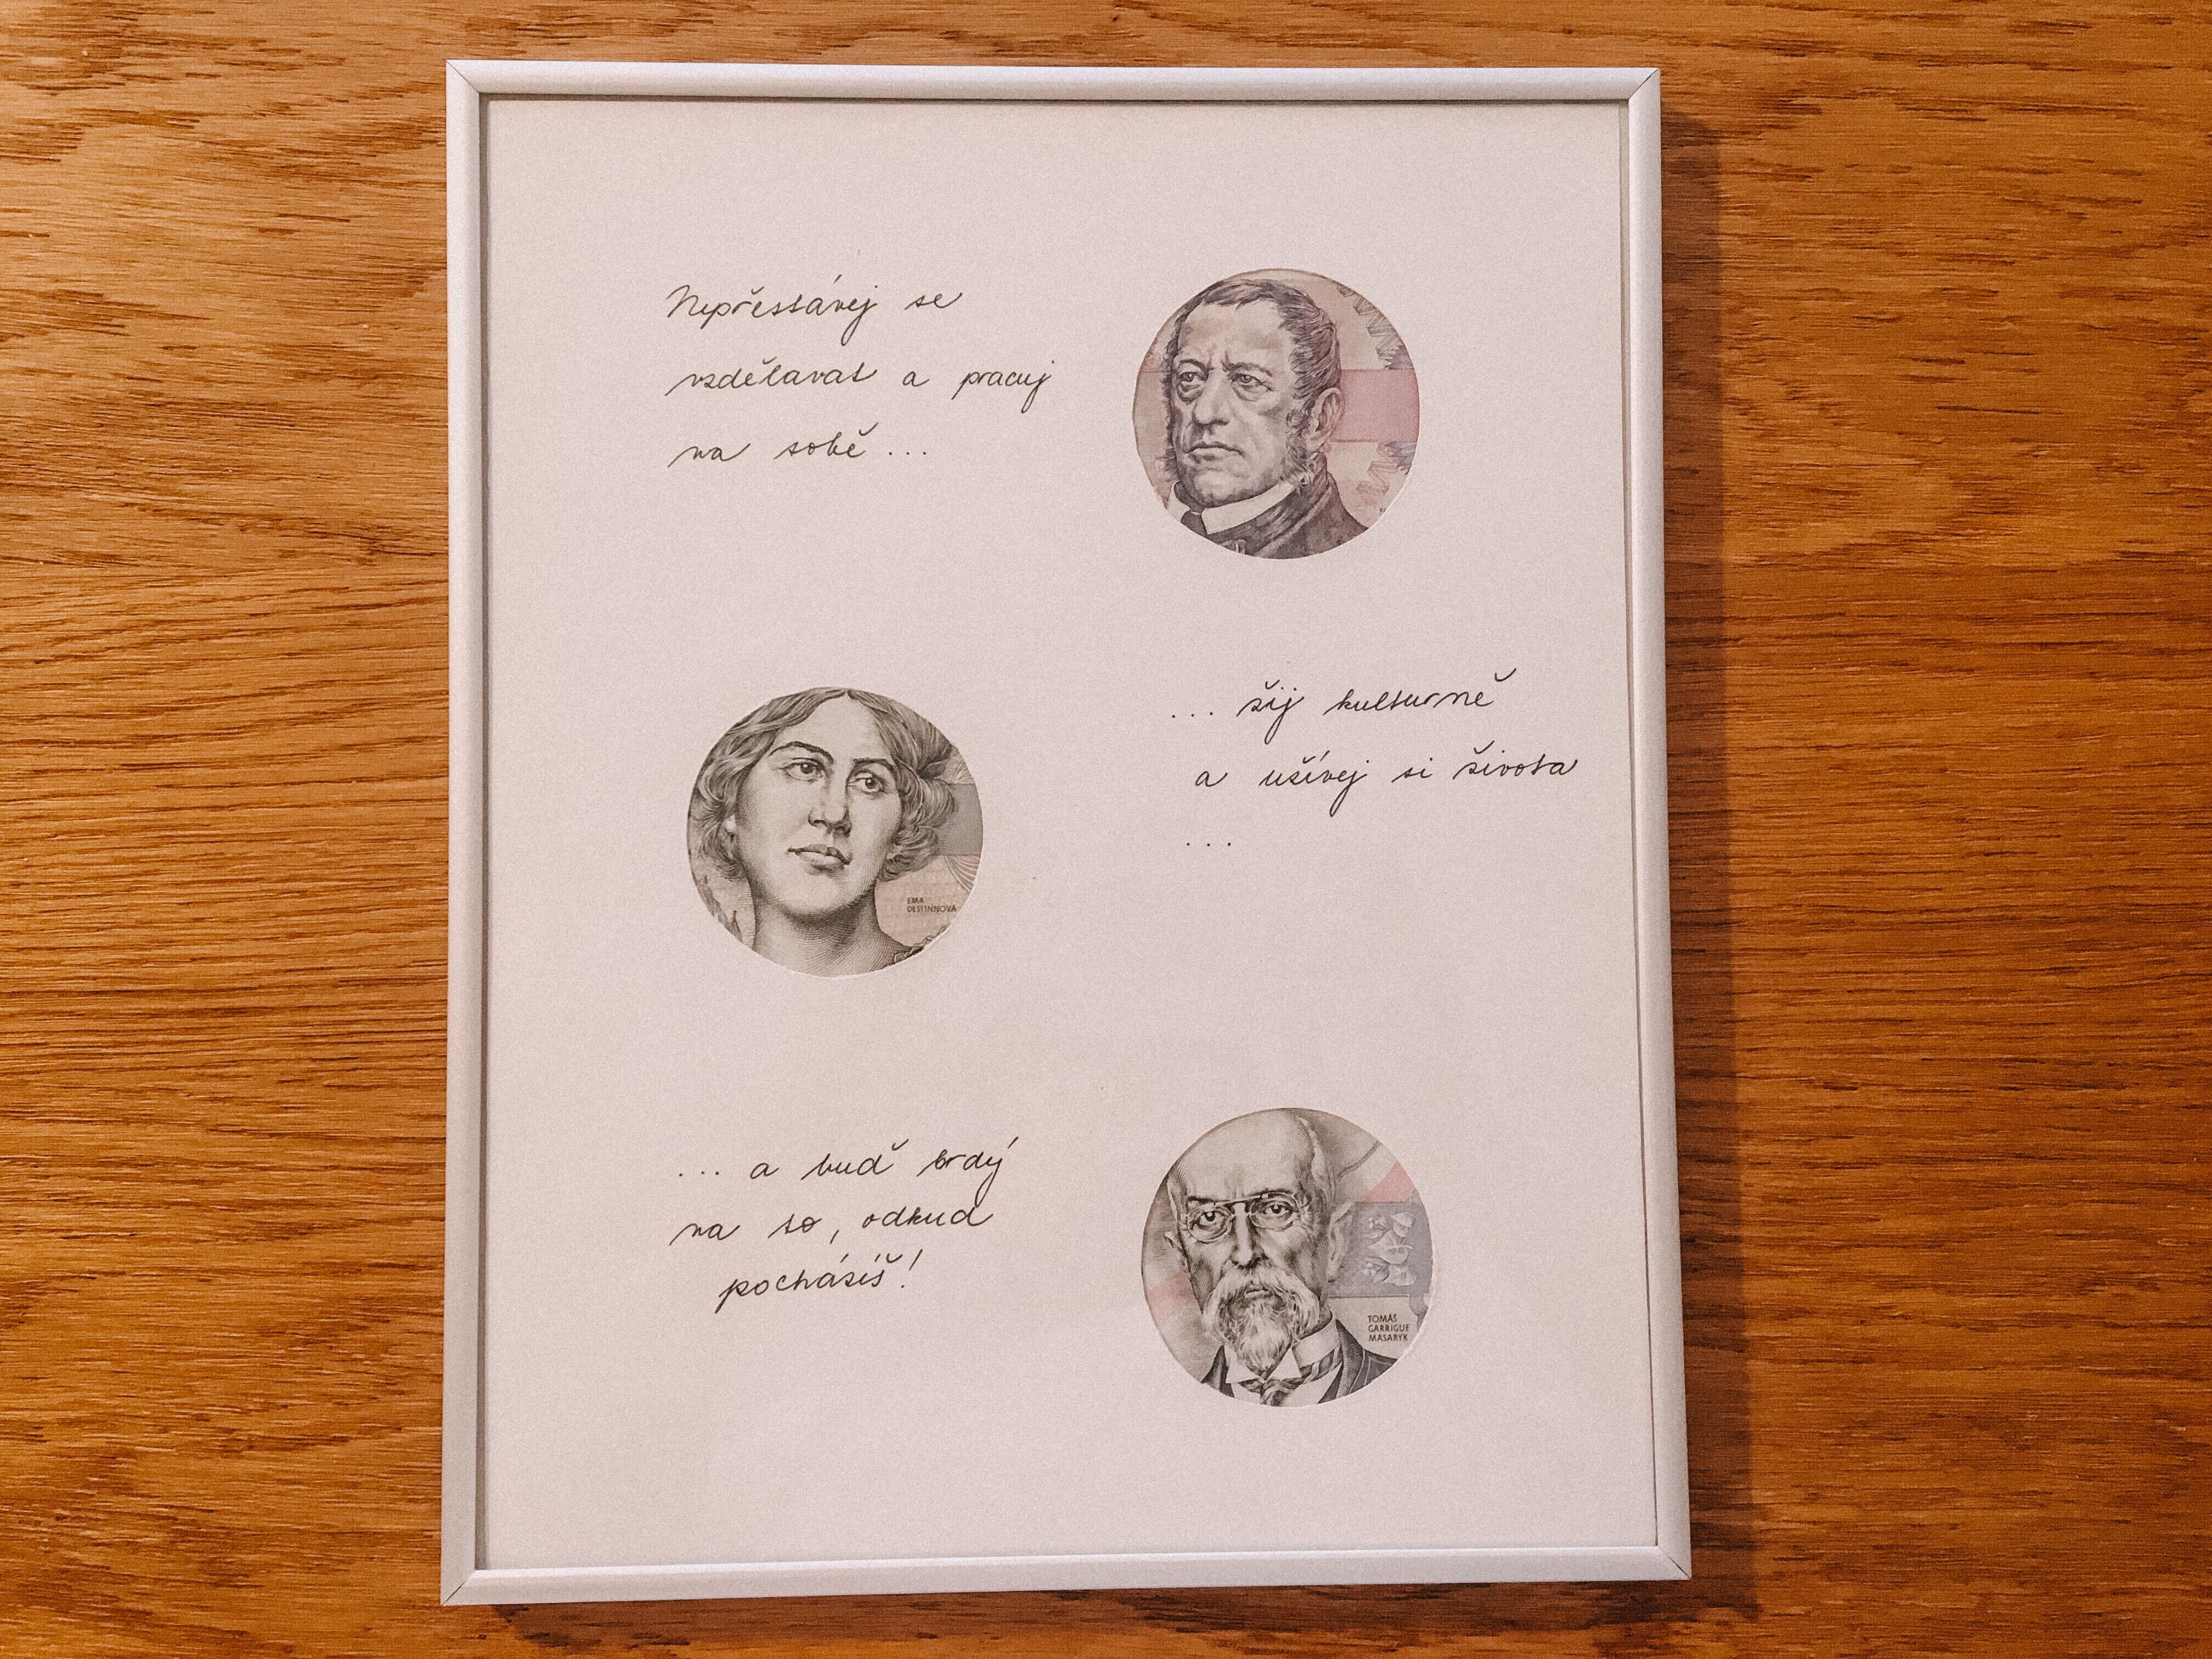 Nepřestávej se
vzdělávat a pracuj
na sobě...
... žij kulturně
a užívej si života
...
EMA
DESTINNOVÁ
... a buď hrdý
na to, odkud
pocházíš!
TOMÁŠ
GARRIGUE
MASARYK